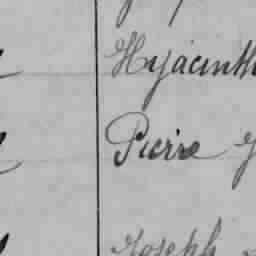 Hyacinth
Pierre
Joseph